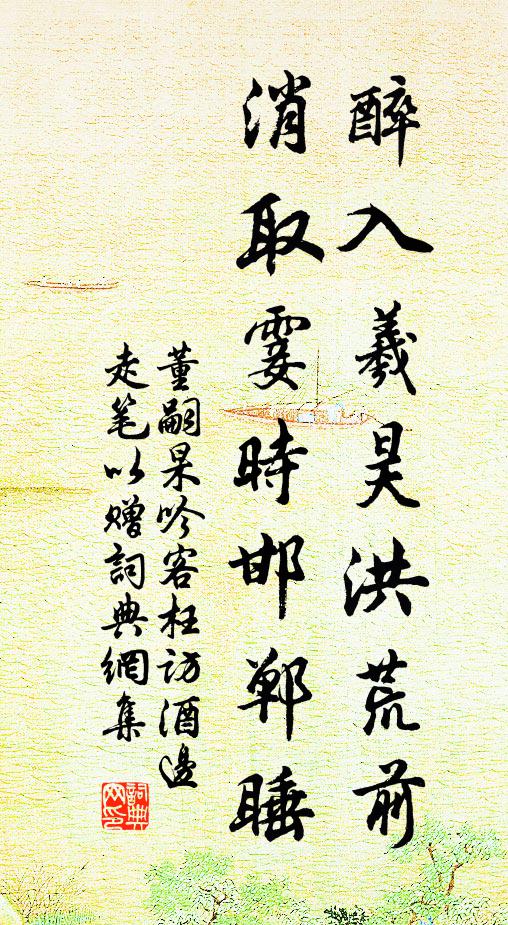 醉入羲昊洪荒前
消取霎時邯鄲睡
董嗣杲吟客枉访酒邊
走笔以赠詞典網集
詞典網印